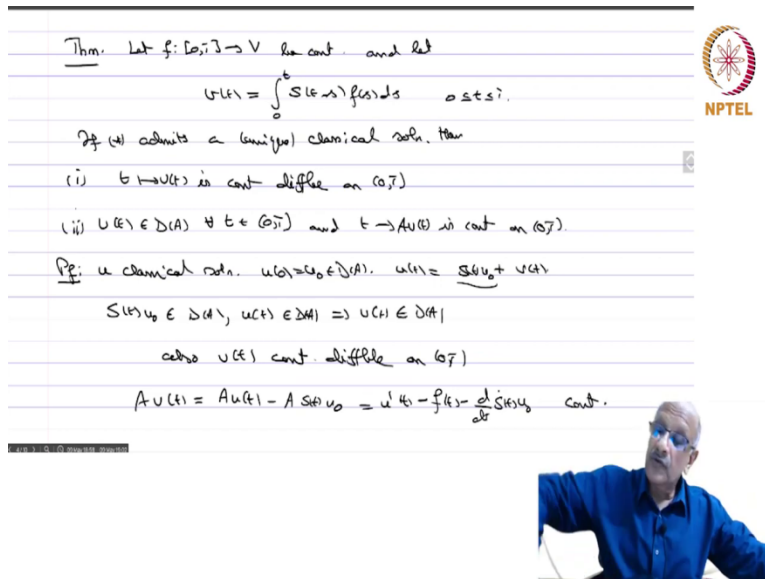 Thm. Let f: [0,T] → V be cont. and let
v(t) = ∫₀ᵗ S(t-s) f(s) ds 0 ≤ t ≤ T.
If (*) admits a (unique) classical soln. then
(i) t ↦ v(t) is cont diffble on (0,T)
(ii) v(t) ∈ D(A) ∀ t ∈ (0,T) and t → Av(t) is cont on (0,T).
Pf: u classical soln. u(0)=u₀ ∈ D(A). u(t) = S(t)u₀ + v(t)
S(t)u₀ ∈ D(A), u(t) ∈ D(A) ⇒ v(t) ∈ D(A)
also v(t) cont. diffble on (0,T)
Av(t) = Au(t) - A S(t)u₀ = u'(t) - f(t) - d/dt S(t)u₀ cont.
NPTEL